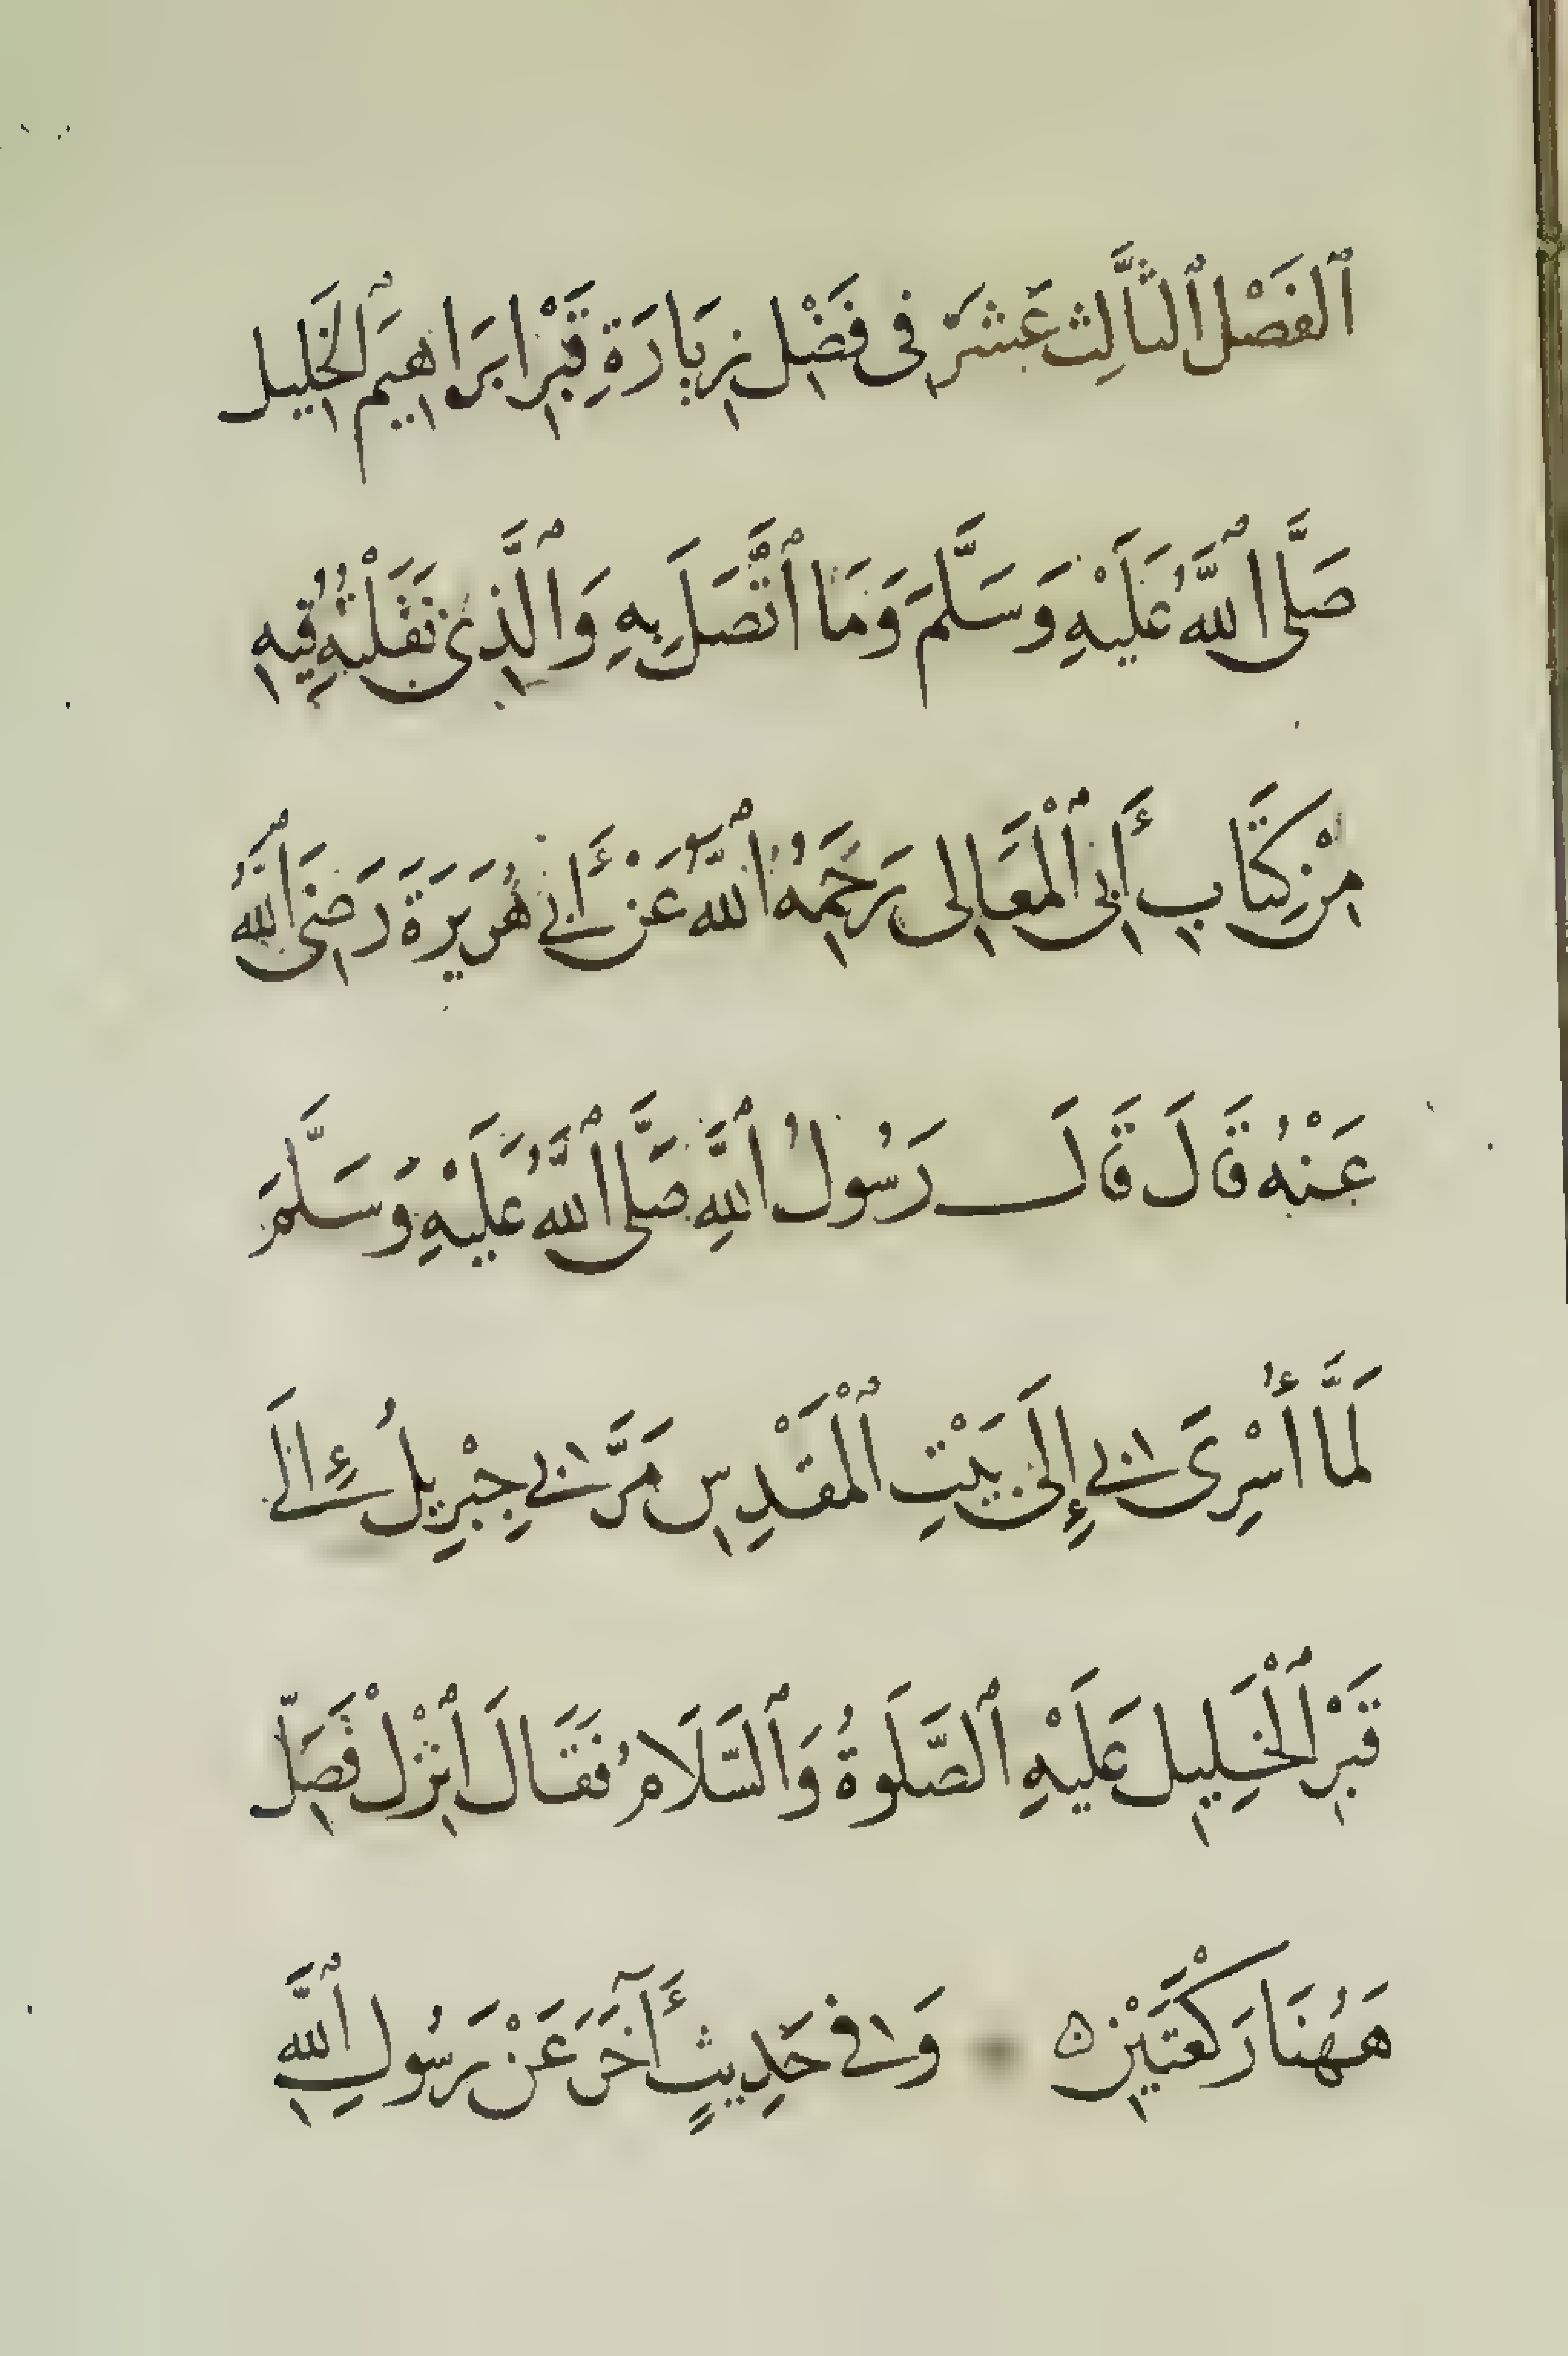 ٱلفَصْل ٱلثَّالِث عَشَرَ فِى فَضْلِ زِيَارَةِ قَبْرِ ابرَاهِيمَ ٱلخَلِيل
صَلَّى ٱللَّهُ عَلَيْهِ وَسَلَّمَ وَمَا ٱتَّصَلَ بِهِ وَٱلَّذِى نَقَلْتُهُ فِيهِ
مِنْ كِتَابِ أَبِى ٱلْمَعَالِى رَحِمَهُ ٱللَّه عَنْ أَبِي هُرَيرَةَ رَضِىَ ٱللَّهُ
عَنْهُ قَالَ قَالَ رَسُولُ ٱللَّهِ صَلَّى ٱللَّهُ عَلَيْهِ وَسَلَّمَ
لَمَّا أُسْرِىَ بِي إِلَى بَيْتِ ٱلْمَقْدِسِ مَرَّ بِي جِبْرِيلُ إِلَى
قَبْرِ ٱلْخَلِيلِ عَلَيْهِ ٱلصَّلَوةُ وَٱلسَّلَامُ فَقَالَ ٱنْزِلْ فَصَلِّ
هَهُنَا رَكْعَتَيْنِ ه وَفِي حَدِيثٍ آخَرَ عَنْ رَسُولِ ٱللَّهِ